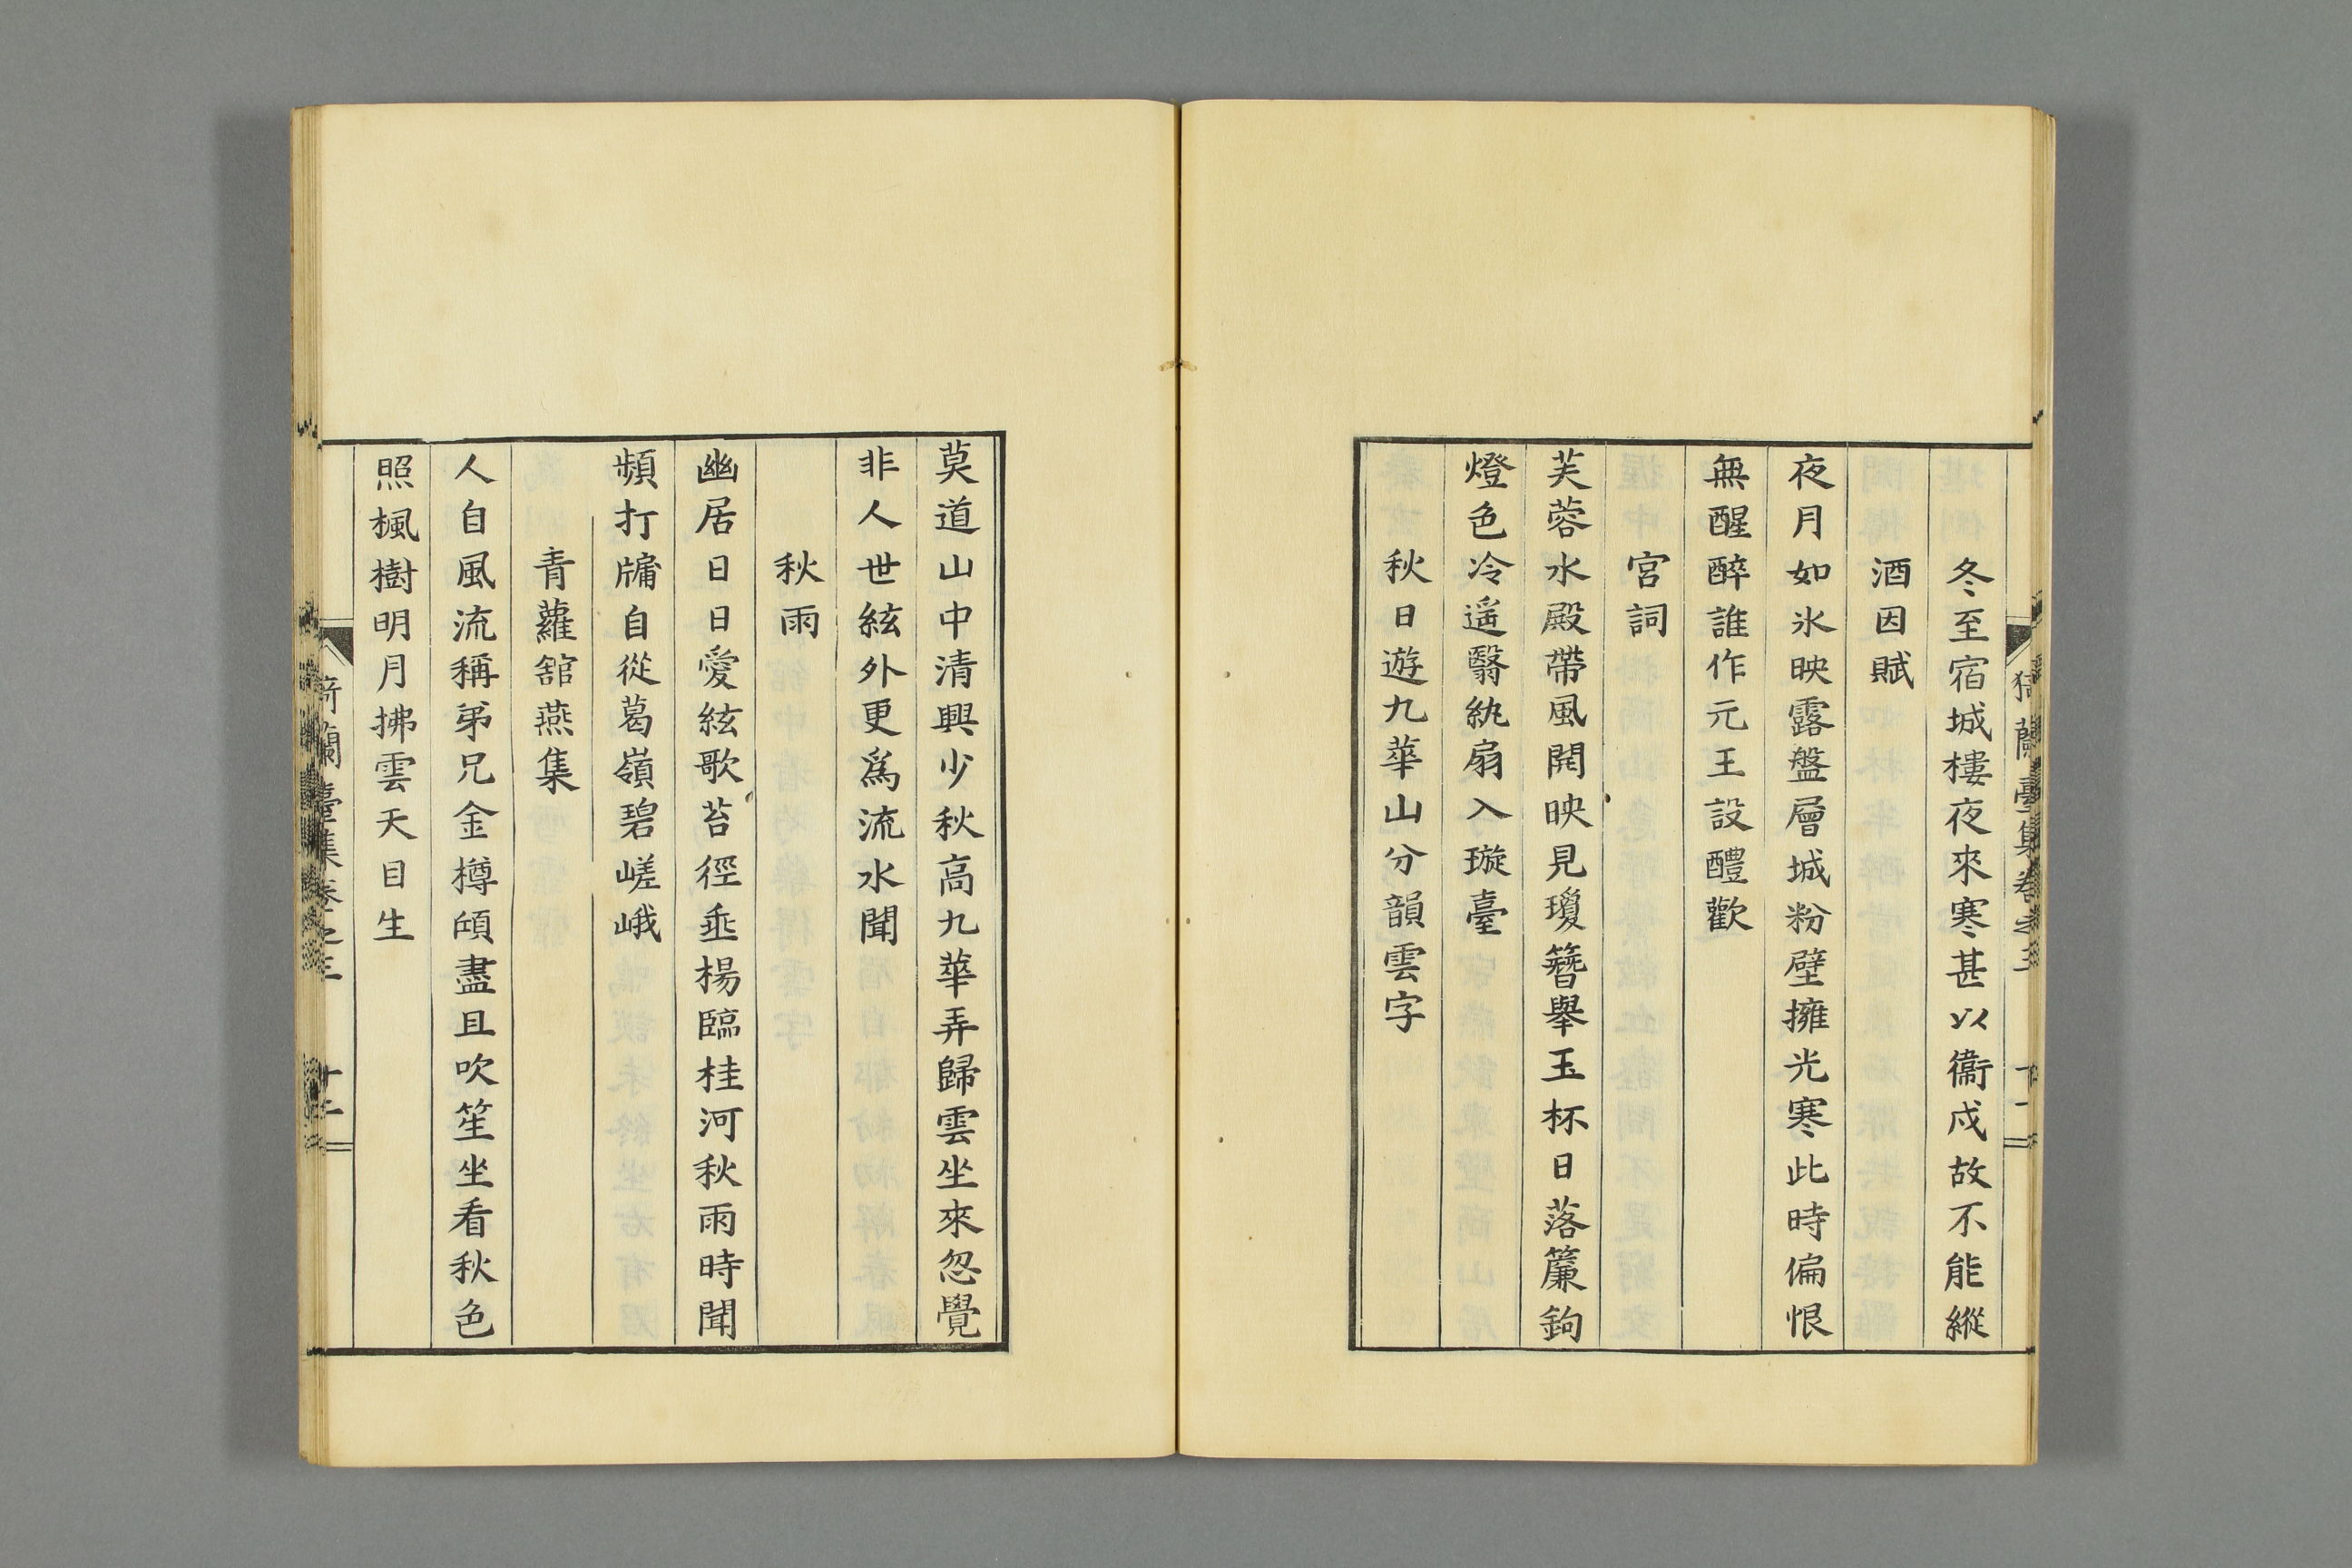 冬至宿城樓夜來寒甚以衞戍故不能縱
酒因賦
夜月如氷映露盤層城粉壁擁光寒此時偏恨
無醒醉誰作元王設醴歡
宮詞
芙蓉水殿帶風開映見瓊簪舉玉杯日落簾鉤
燈色冷遥翳紈扇入璇臺
秋日遊九華山分韻雲字
莫道山中清興少秋高九華弄歸雲坐來忽覺
非人世絃外更爲流水聞
秋雨
幽居日日愛絃歌苔徑垂楊臨桂河秋雨時聞
頻打牗自從葛嶺碧嵯峨
青蘿舘燕集
人自風流稱弟兄金樽頃盡且吹笙坐看秋色
照楓樹明月拂雲天目生
猗蘭臺集卷之三
十一
猗蘭臺集卷之三
十二